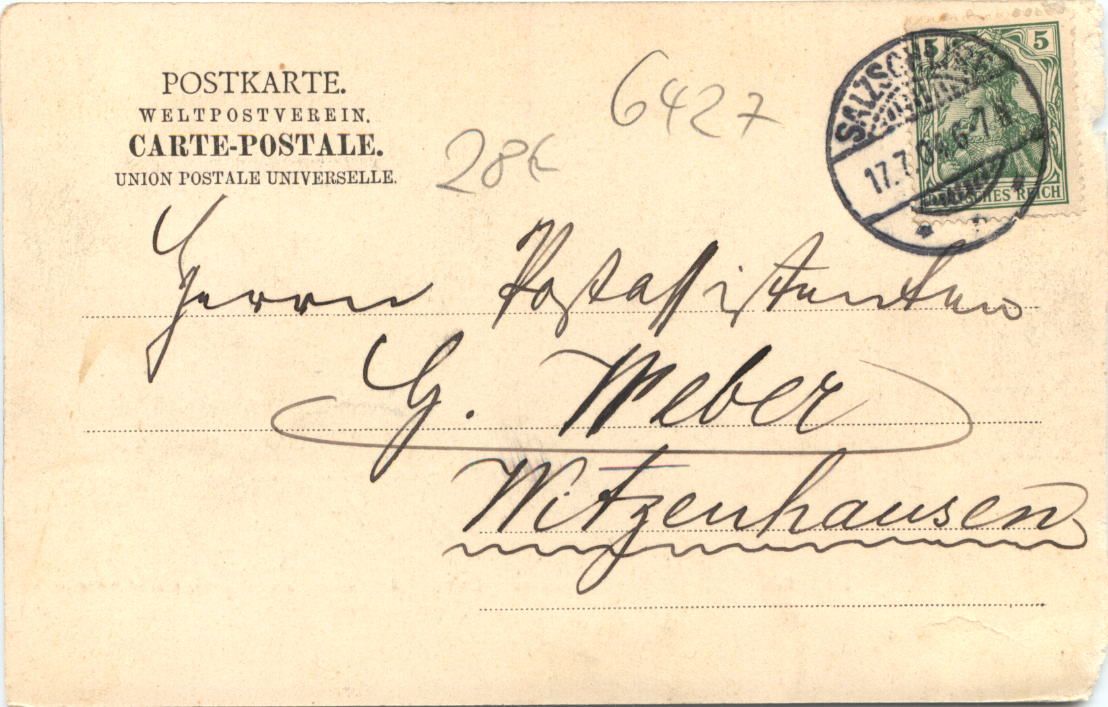 POSTKARTE.
WELTPOSTVEREIN.
CARTE-POSTALE.
UNION POSTALE UNIVERSELLE.
28€
6427
5 5
SALZSCHLIRF
17.7. 6-7N
DEUTSCHES REICH
Herrn Postassistenten
G. Weber
Witzenhausen